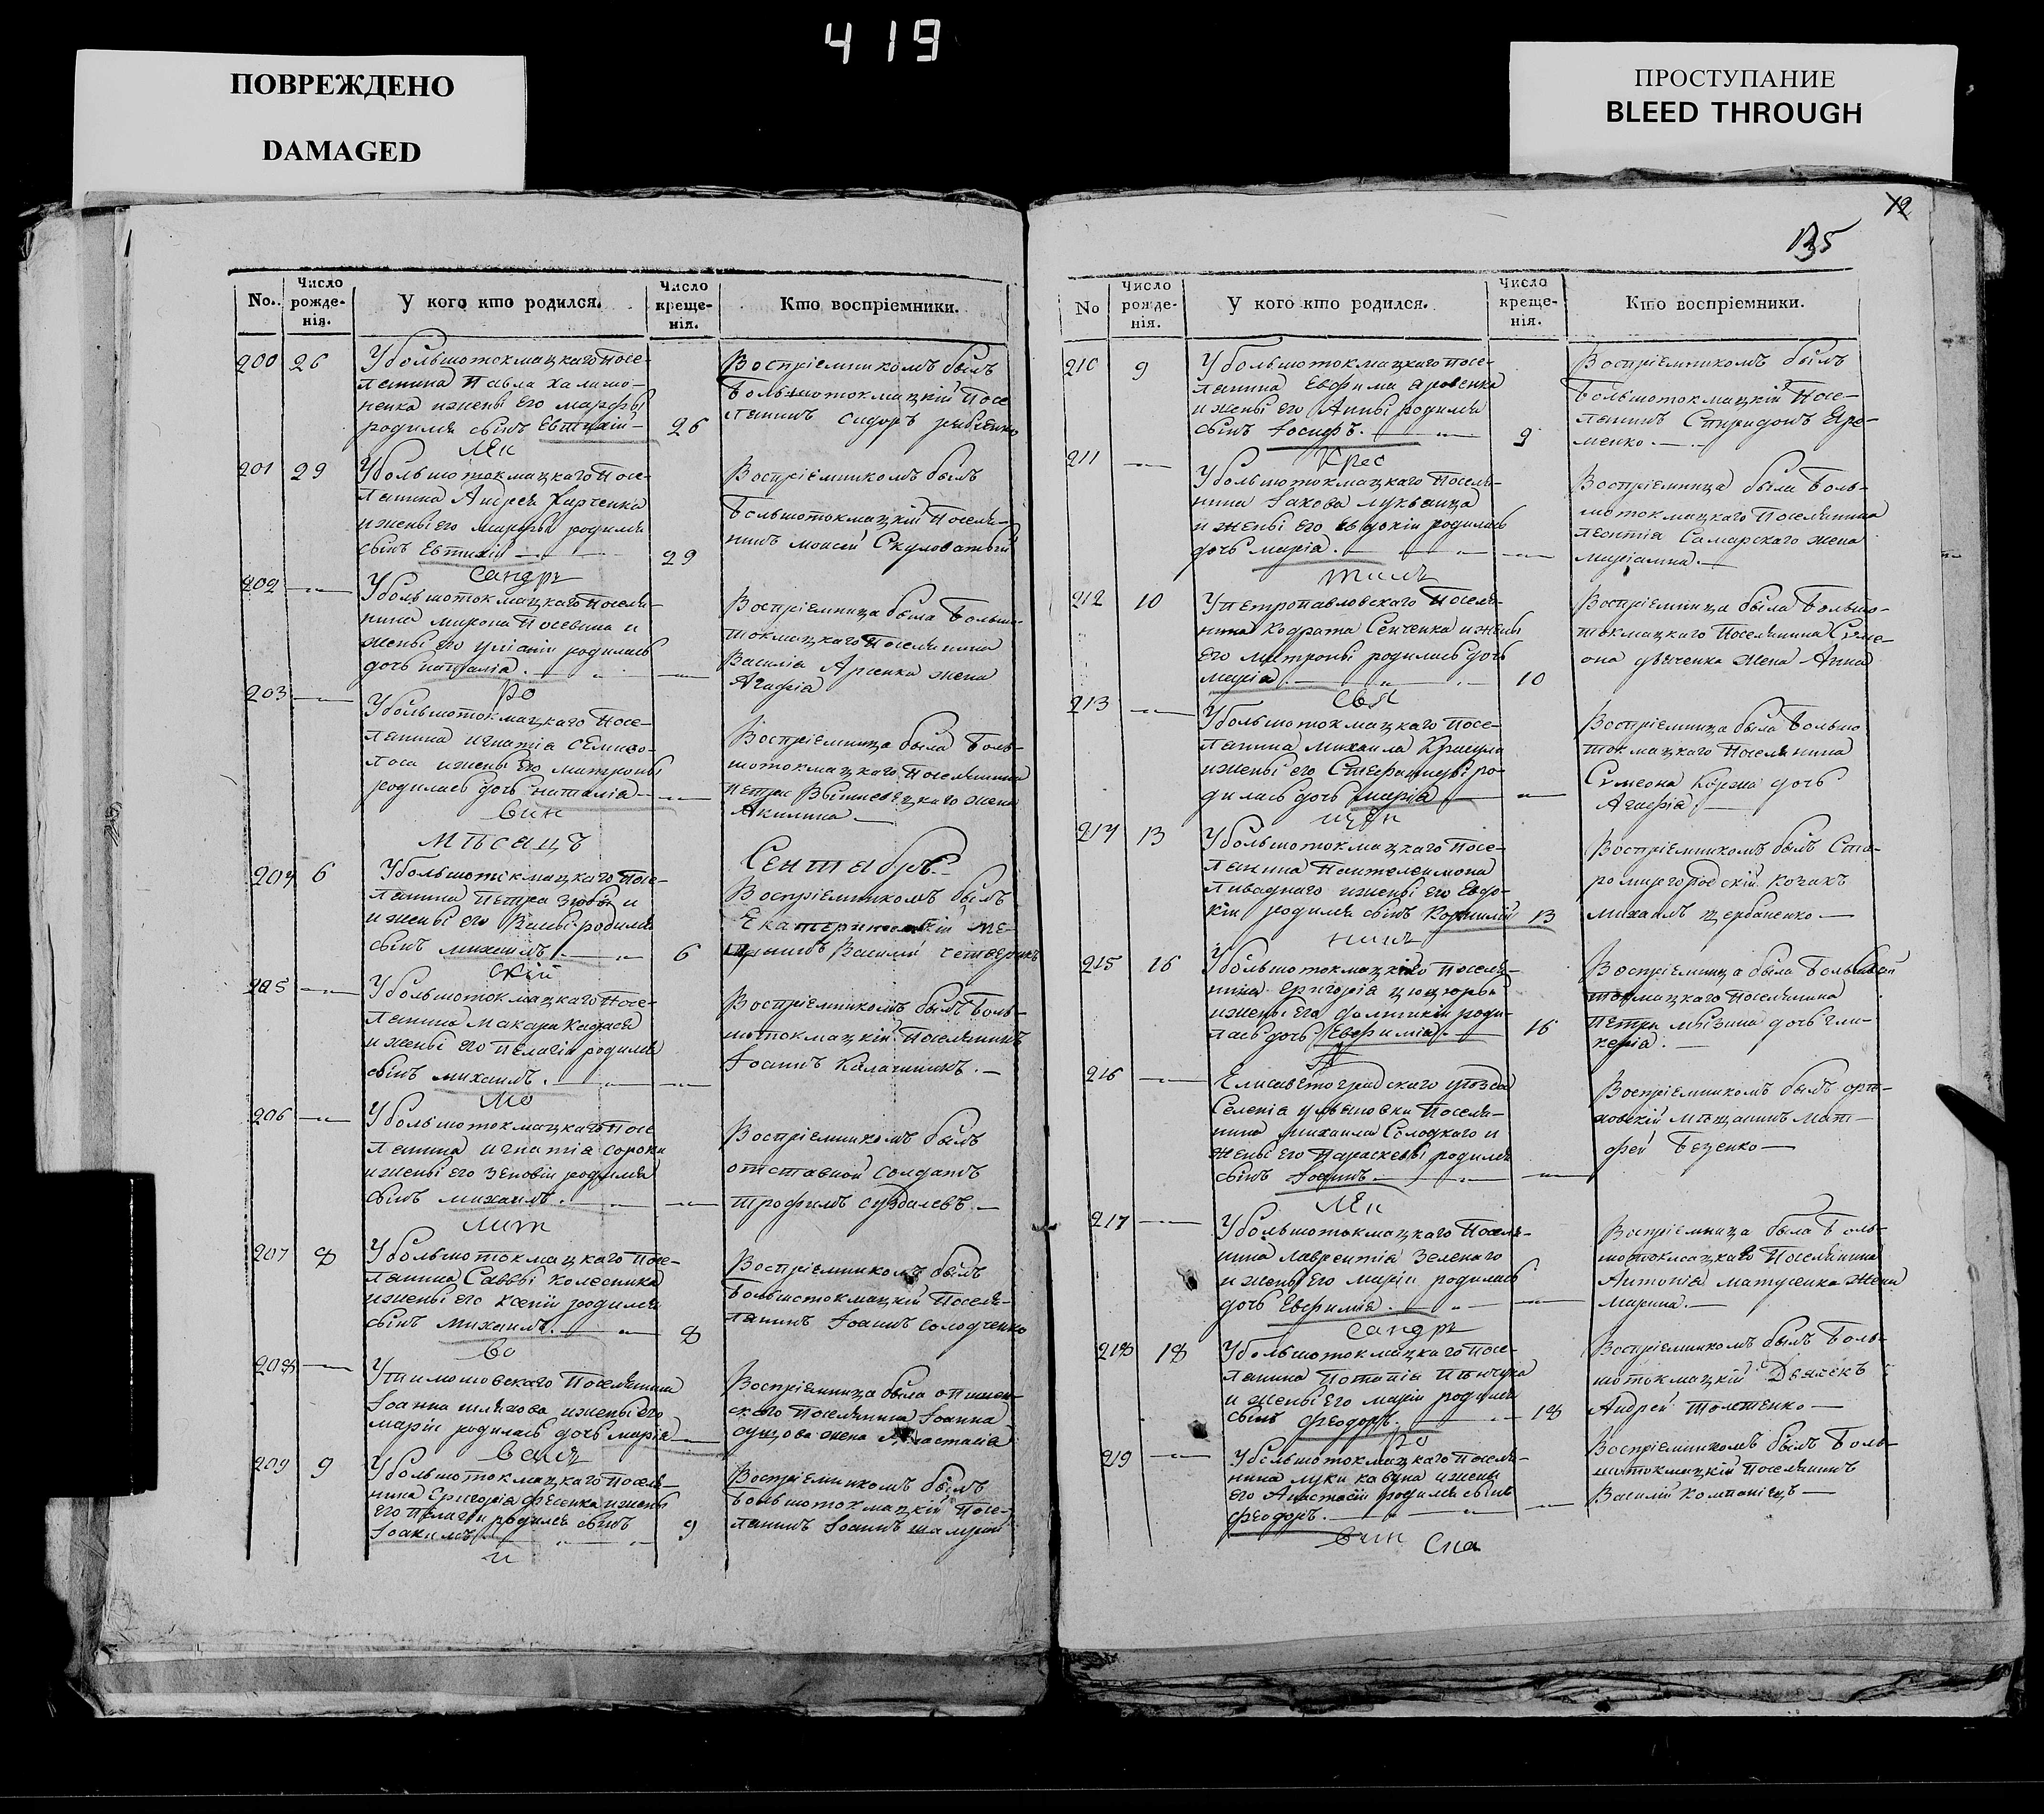 419
ПОВРЕЖДЕНО
DAMAGED
ПРОСТУПАНИЕ
BLEED THROUGH
No. Число рожде-нія. У кого кто родился. Число креще-нія. Кто воспріемники.
200 26 У большотокмацкаго посе-
лянина Павла Халимо-
ненка и жены его Марфы
родился сынъ Евтихій 26
Воспріемникомъ былъ
Большотокмацкій Посе
лянинъ Сидоръ
лен
201 29 У большотокмацкаго Посе-
лянина Андрея Харченка
и жены его Марфы родился
сынъ Евтихій 29
Воспріемникомъ былъ
Большотокмацкій Поселя-
нинъ Моисей Скуловатый
сандръ
202 У большотокмацкаго Поселя-
нина Мирона Посевина и
жены его Уліаніи родилась
дочь Наталіа.
Воспріемница была Больше-
токмацкаго Поселянина
Василіа Арсенка жена
Агафіа
ро
203 У большотокмацкаго Посе-
лянина Игнатіа Сели-
и жены его Митроны
родилась дочь Наталіа
Воспріемница была Боль-
шотокмацкаго Поселянина
Петра жена
Акилина
вин
мѣсяцъ Сентябрь
204 6 У большотокмацкаго Посе-
лянина Петра Зюбы и
и жены его родился
сынъ Михаилъ. 6
Воспріемникомъ былъ
Василій Четверикъ
скій
205 У большотокмацкаго Посе-
лянина Макара
и жены его Пелагіи родился
сынъ Михаилъ.
Воспріемникомъ былъ Боль-
шотокмацкій Поселянинъ
Іоаннъ Калашникъ.
мо
206 У большотокмацкаго Посе
лянина Игнатіа Сороки
и жены его Зеновіи родился
сынъ Михаилъ.
Воспріемникомъ былъ
отставной солдатъ
Трофимъ Суздалевъ.
лит
207 8 У большотокмацкаго Посе-
лянина Саввы Колесника
и жены его Ксеніи родился
сынъ Михаилъ. 8
Воспріемникомъ былъ
Большотокмацкій Поселя-
лянинъ Іоаннъ Солодченко
во
208 У тимошовскаго Поселянина
Іоанна Шляхова и жены его
Маріи родилась дочь Маріа
Воспріемница была
скаго Поселянина Іоанна
жена Анастасіа
валъ
209 9 У большотокмацкаго Поселя-
нина Григоріа Фесенка и жены
его Пелагіи родился сынъ
Іоакимъ. 9
Воспріемникомъ былъ
Большотокмацкій Посе-
лянинъ Іоаннъ
и
12
135
No Число рожде-нія. У кого кто родился. Число креще-нія. Кто воспріемники.
210 9 У большотокмацкаго посе-
лянина Евфима Яровенка
и жены его Анны родился
сынъ Іосифъ. 9
Воспріемникомъ былъ
Большотокмацкій Посе-
лянинъ Спиридонъ Яре-
менко.
Крес
211 У большотокмацкаго Поселя-
нина Іакова Луквянца
и жены его Евдокіи родилась
дочь Маріа.
Воспріемница была Боль-
шотокмацкаго Поселянина
Леонтіа Самарскаго жена
Маріамна.
тилъ
212 10 У петропавловскаго Поселя-
нина Кодрата Сенченка и жены
его Митроны родилась дочь
Маріа. 10
Воспріемница была Большо-
токмацкаго Поселянина Симе-
она Дьяченка жена Анна
свя
213 У большотокмацкаго Посе-
лянина Михаила Красули
и жены его Стефаниды ро-
дилась дочь Маріа
Воспріемница была Большо
токмацкаго Поселянина
Симеона Коржа дочь
Агафіа.
щен
214 13 У большотокмацкаго Посе-
лянина Пантелеимона
Ливаднаго и жены его Евдо-
кіи родился сынъ Корнилій 13
Воспріемникомъ былъ Ста-
родскій Козакъ
Михаилъ Щербаненко
никъ
215 16 У большотокмацкаго Поселя-
нина Григоріа Цюцюры
и жены его родилась
лась дочь Евфиміа. 16
Воспріемница была Большой
токмацкаго Поселянина
Петра Мызина дочь Гли-
керіа.
216 Елисаветоградскаго уѣзда
Селеніа Ульяновки Поселя-
нина Михаила Солодкаго и
жены его Параскевы родился
сынъ Іоаннъ.
Воспріемникомъ былъ орѣ-
ховскій мѣщанинъ Мат-
фей Безенко
лен
217 У большотокмацкаго Поселя-
нина Лаврентіа Зеленаго
и жены его Маріи родилась
дочь Евфиміа.
Воспріемница была Боль-
шотокмацкаго Поселянина
Антоніа Матусенка жена
Марина.
сандръ
218 18 У большотокмацкаго Посе-
лянина Потапіа
и жены его Маріи родился
сынъ Феодоръ. 18
Воспріемникомъ былъ Боль-
шотокмацкій Дьячекъ
Андрей
ро
219 У большотокмацкаго Поселя-
нина Луки Кавуна и жены
его Анастасіи родился сынъ
Феодоръ.
Воспріемникомъ былъ Боль-
шотокмацкій Поселянинъ
Василій Компаніецъ
вин Спа